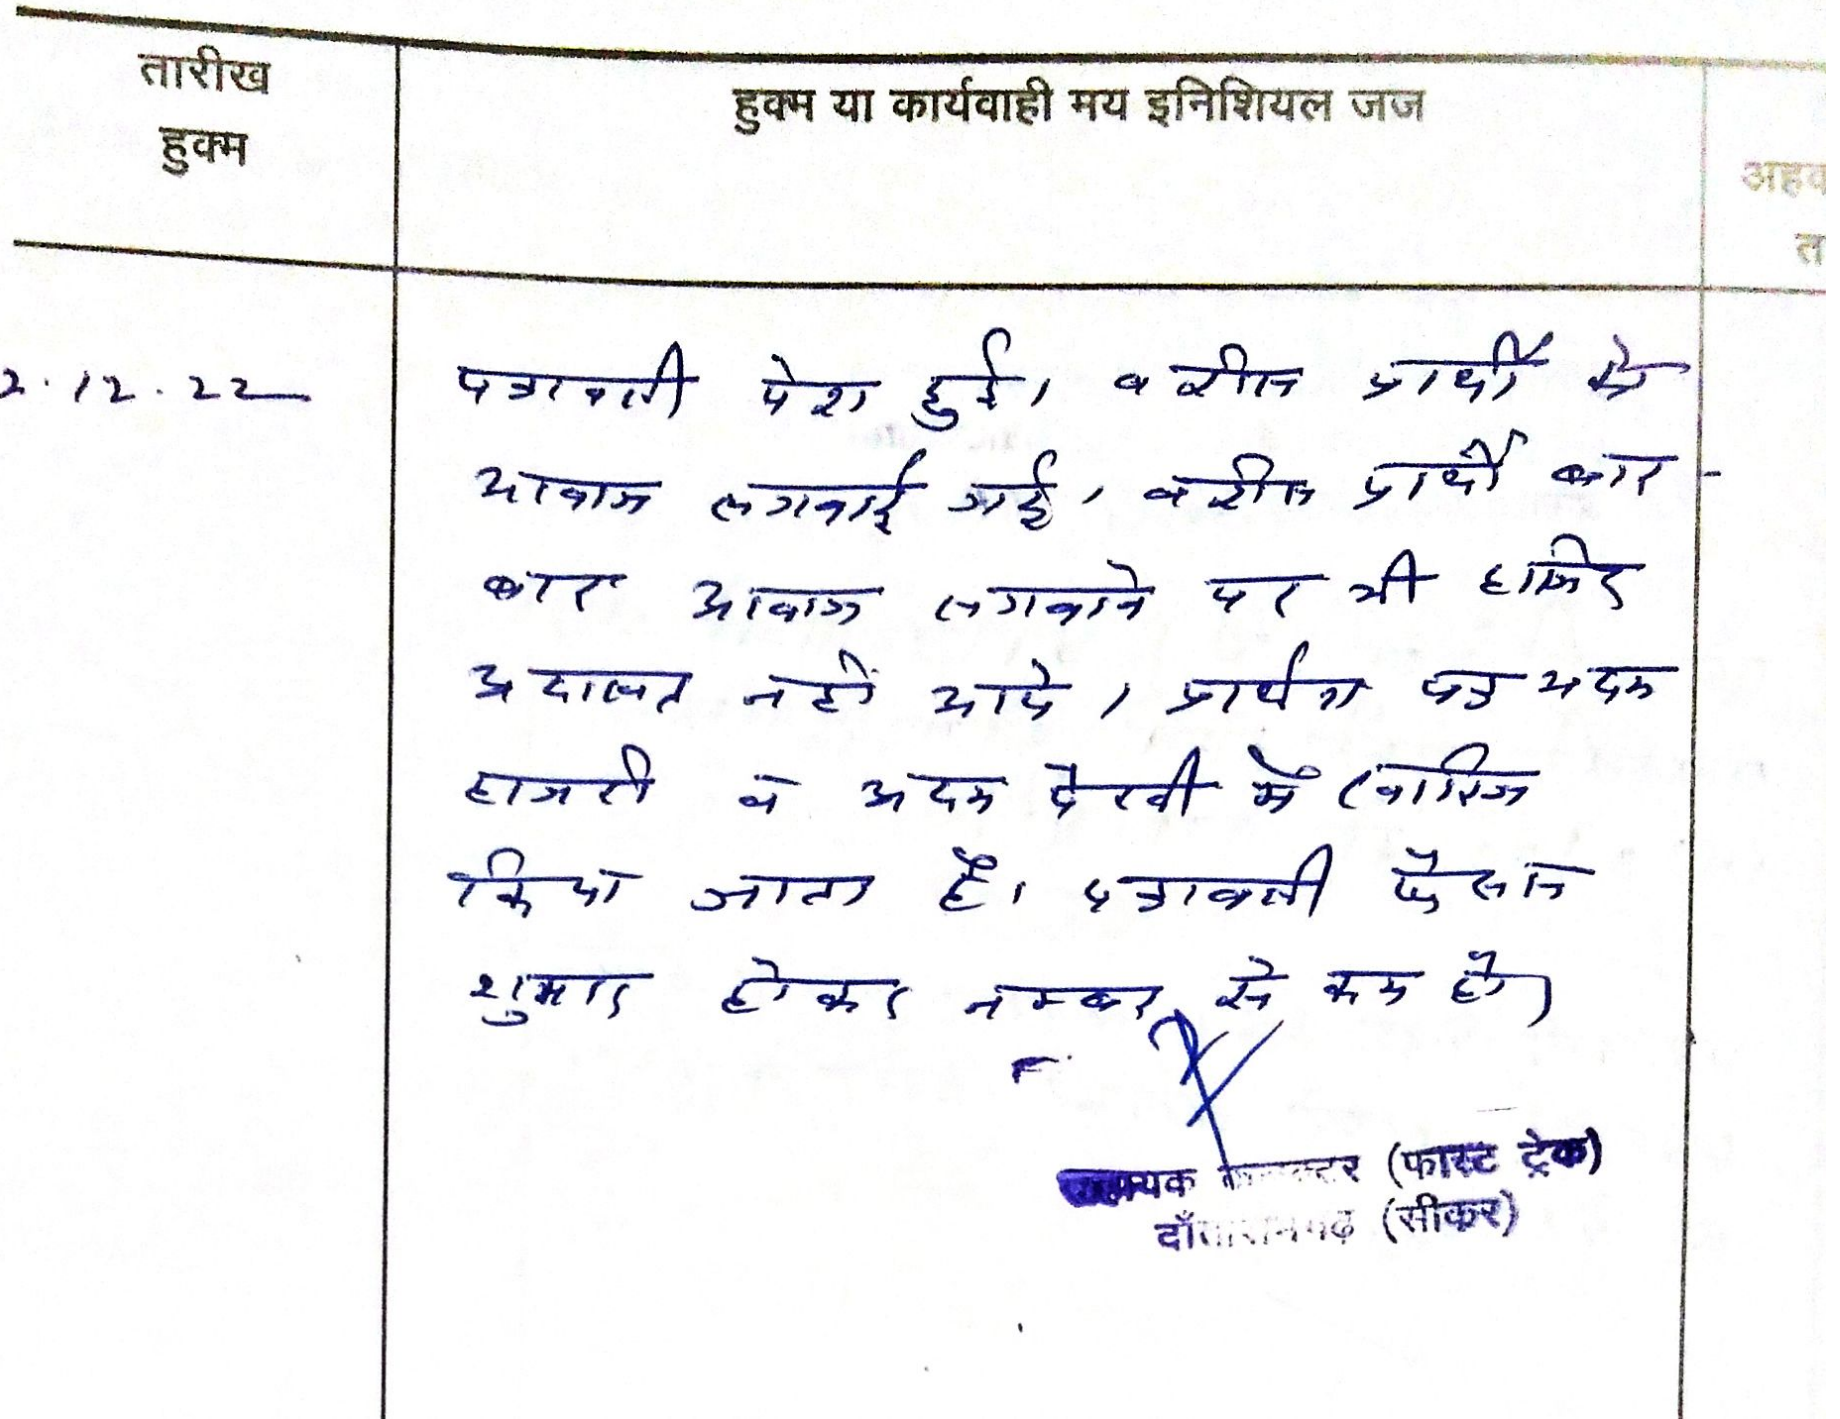 तारीख
हुक्म
हुक्म या कार्यवाही मय इनिशियल जज
अहक
त
2.12.22
पत्रावली पेश हुई। वकील प्रार्थी को
आवाज लगवाई गई, वकील प्रार्थी बार-
बार आवाज लगवाने पर भी हाजिर
अदालत नहीं आये, प्रार्थना पत्र अदम
हाजरी व अदम पैरवी में खारिज
किया जाता है। पत्रावली फैसल
शुमार होकर नम्बर से कम हो।
(फास्ट ट्रेक)
दाँतारामगढ़ (सीकर)